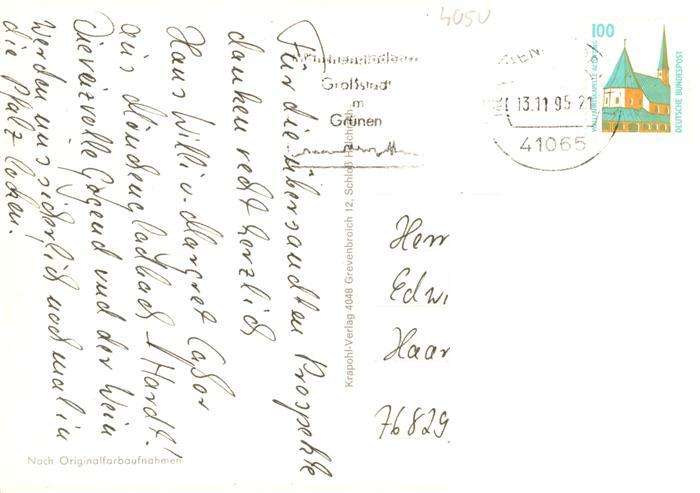 Für die übersandten Prospekte
danken recht herzlich
Hans Willi u. Margret
aus Mönchengladbach Hardt!
Die reizvolle Gegend und der Wein
werden uns sicherlich noch mal in
die Pfalz locken!
4050
Großstadt
im
Grünen
13.11.95-21
41065
100
DEUTSCHE BUNDESPOST
Herr
Edw
Haar
76829
Krapohl-Verlag 4048 Grevenbroich 12, Schloß
Nach Originalfarbaufnahmen